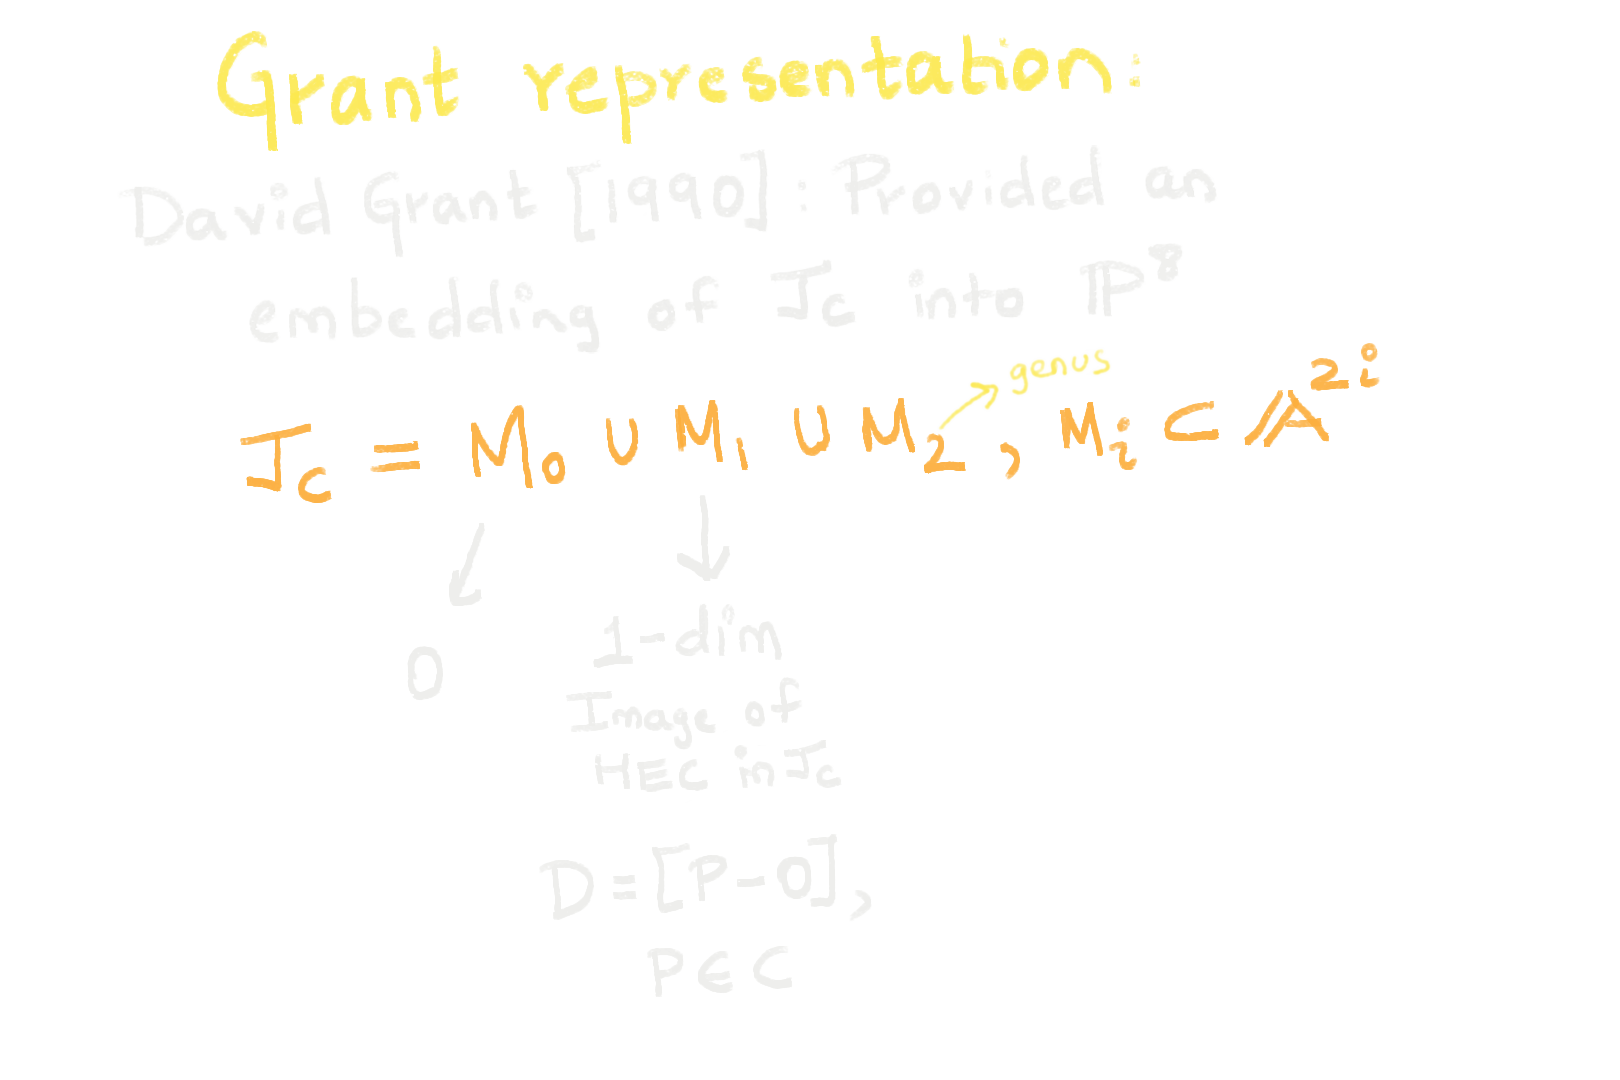 Grant representation:
David Grant [1990]: Provided an
embedding of J_C into ℙ⁸
genus
J_C = M₀ ∪ M₁ ∪ M₂, Mᵢ ⊂ 𝔸²ⁱ
0
1-dim
Image of
HEC in J_C
D = [P-0],
P ∈ C